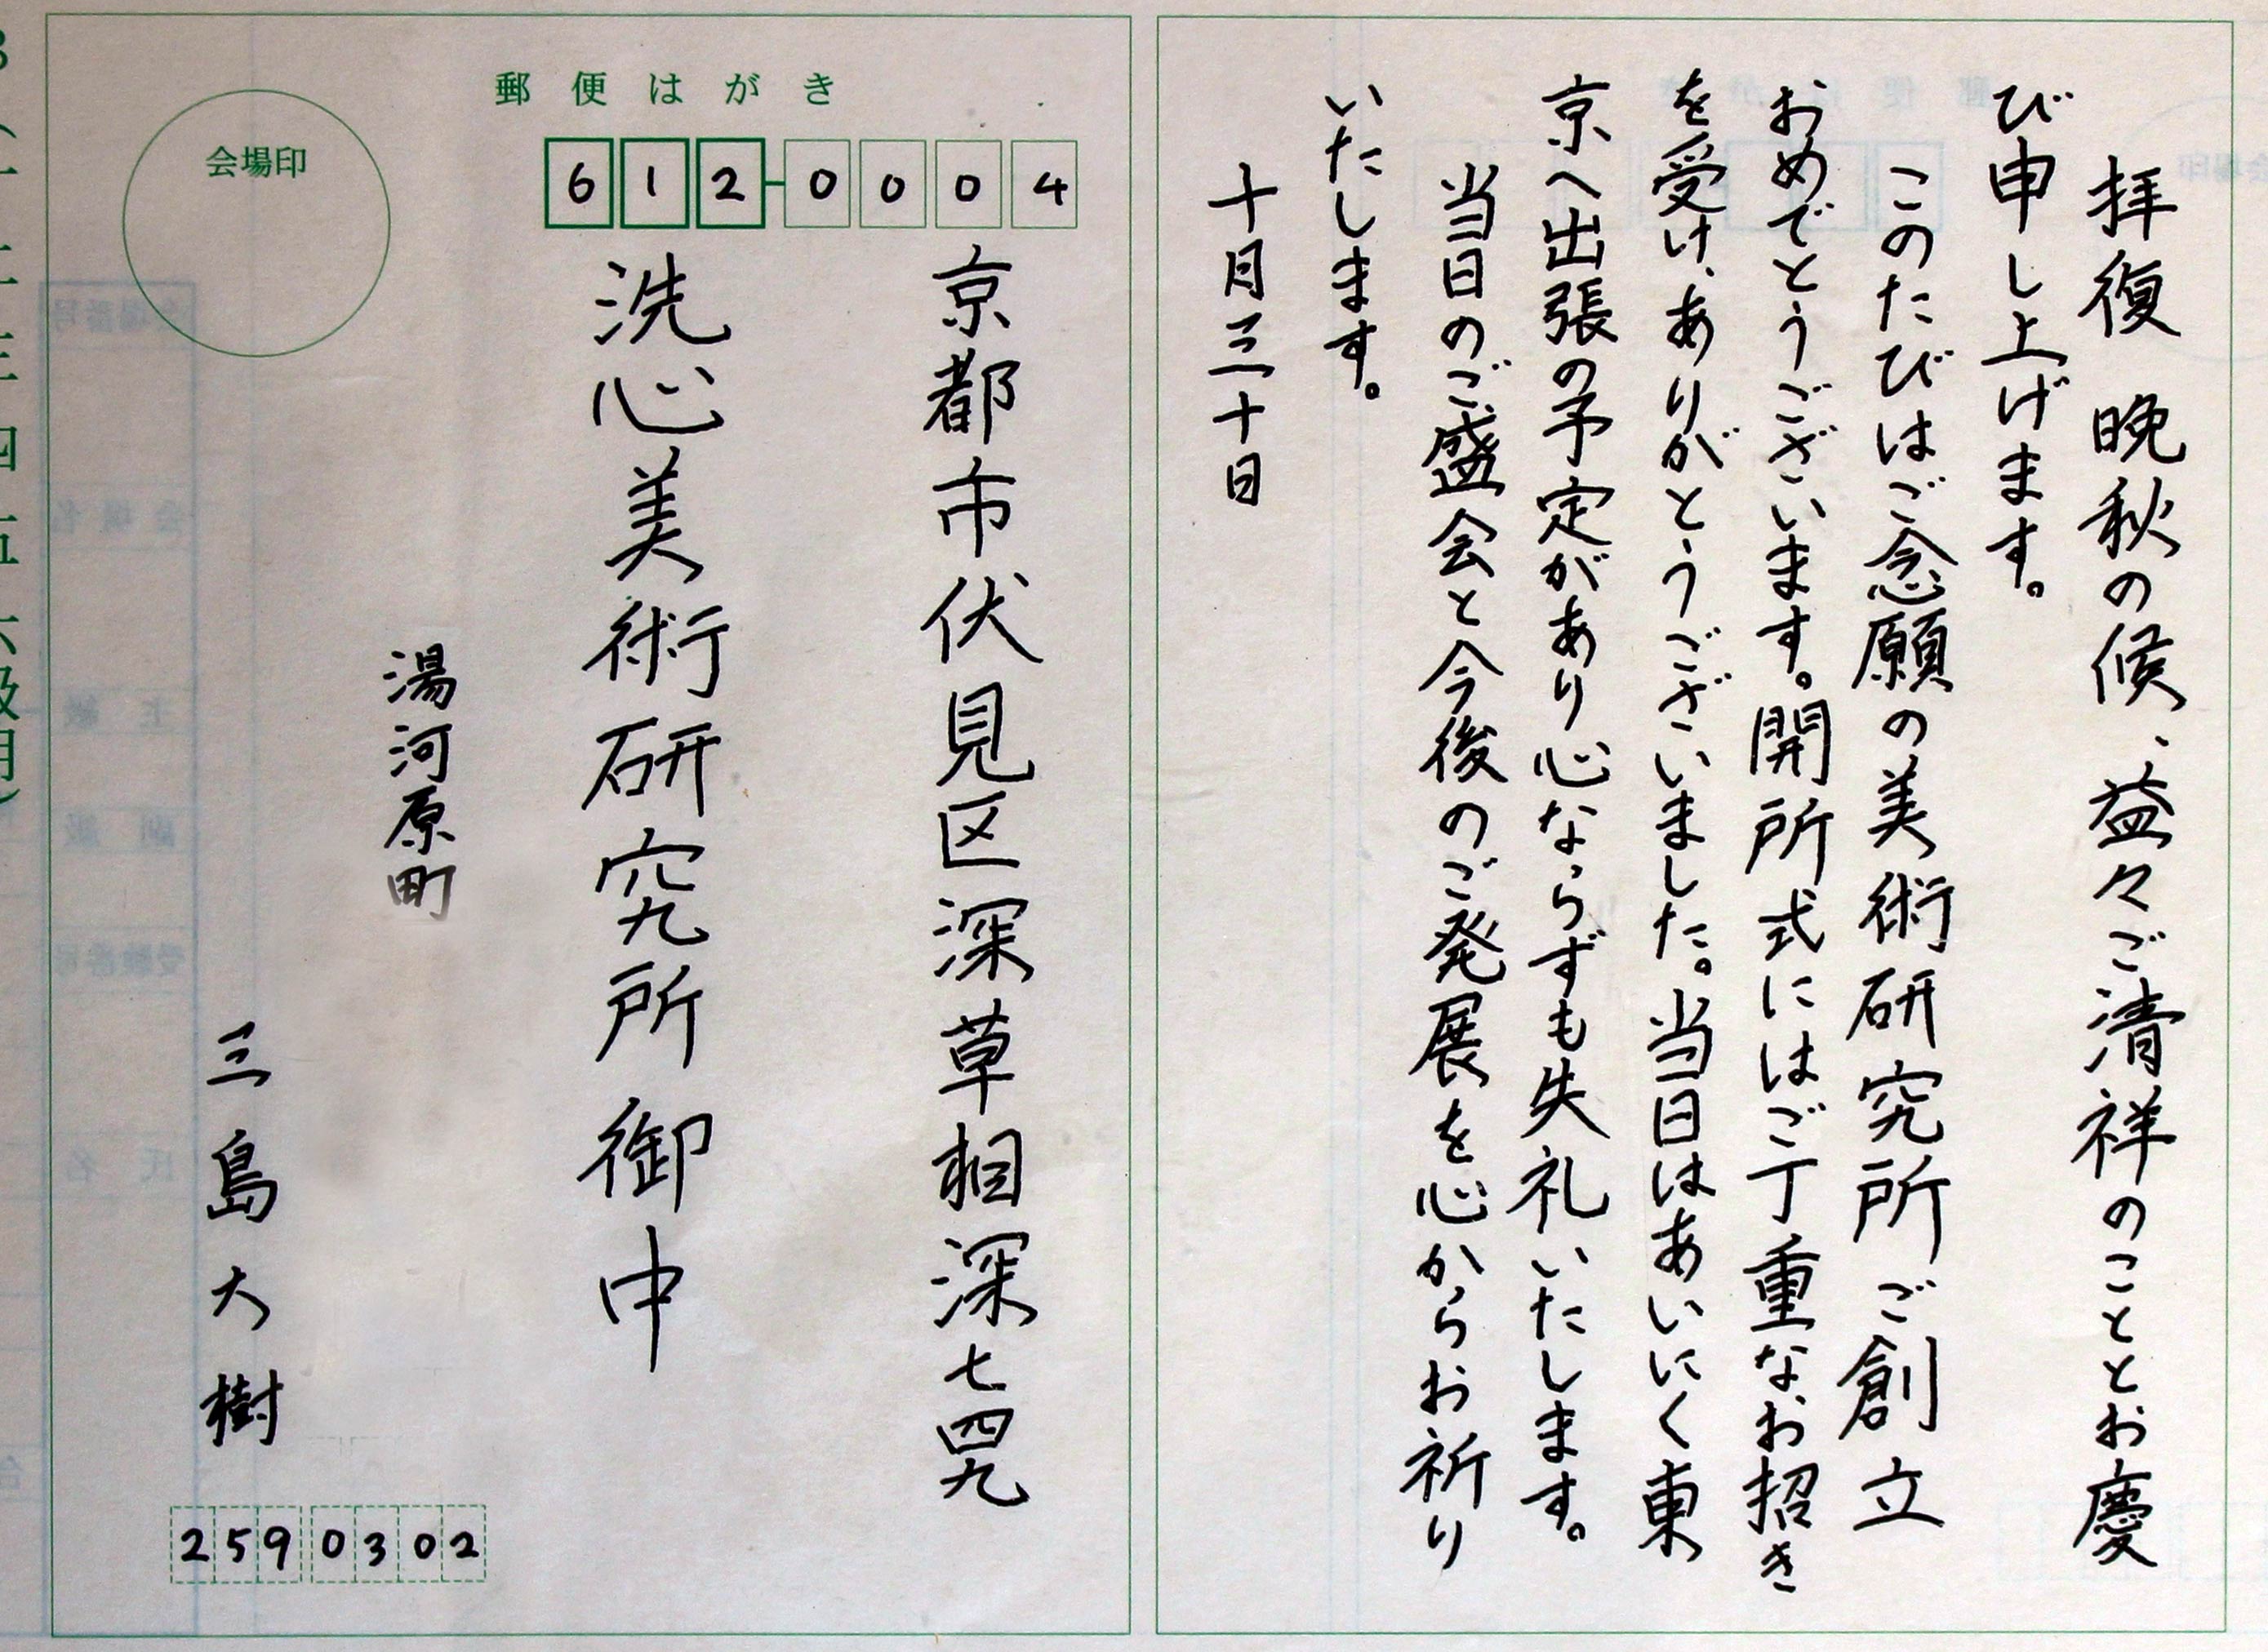 拝復 晩秋の候、益々ご清祥のこととお慶
び申し上げます。
このたびはご念願の美術研究所ご創立
おめでとうございます。開所式にはご丁重なお招き
を受け、ありがとうございました。当日はあいにく東
京へ出張の予定があり心ならずも失礼いたします。
当日のご盛会と今後のご発展を心からお祈り
いたします。
十月三十日
郵便はがき
会場印
612-0004
京都市伏見区深草相深七四九
洗心美術研究所 御中
湯河原町
三島大樹
259 0302